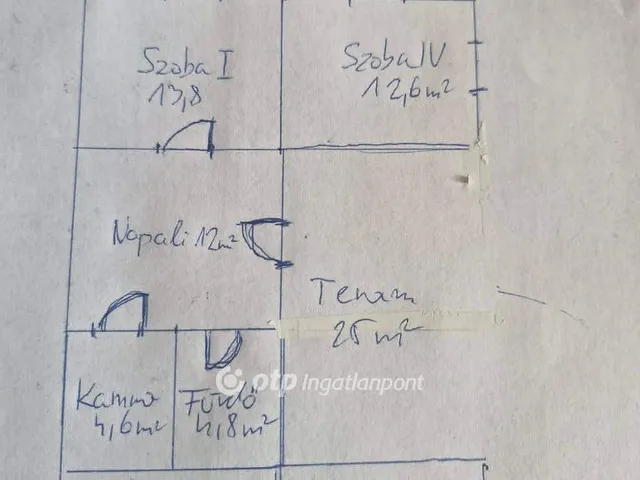 Szoba I
13,8
Szoba IV
12,6 m²
Nappali 12 m²
Terasz
25 m²
otp Ingatlanpont
Kamra
4,6 m²
Fürdő
4,8 m²